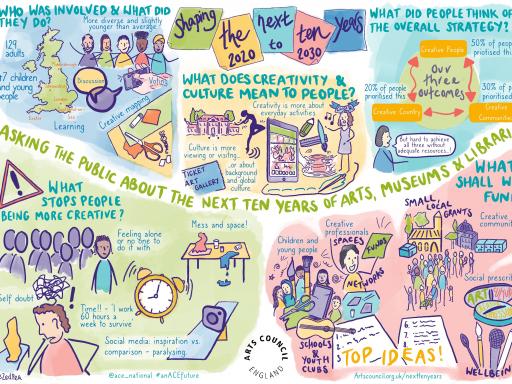 shaping
the
next
to
ten
years
2020
2030
WHO WAS INVOLVED & WHAT DID
THEY DO?
More diverse and slightly
younger than average
129
adults
children
and young
people
Learning
Discussion
Voting
Creative mapping
WHAT DOES CREATIVITY &
CULTURE MEAN TO PEOPLE?
Creativity is more about
everyday activities
Culture is more
viewing or visiting..
..or about
background
and global
culture.
TICKET
ART
GALLERY
WHAT DID PEOPLE THINK OF
THE OVERALL STRATEGY?
Creative People
50% of people
prioritised this
20% of people
prioritised this
Our
three
outcomes
30% of
prioritised
Creative Country
Creative
Communities
But hard to achieve
all three without
adequate resources...
ASKING THE PUBLIC ABOUT THE NEXT TEN YEARS OF ARTS, MUSEUMS & LIBRARIES
WHAT
STOPS PEOPLE
BEING MORE CREATIVE?
Feeling alone
or no one to
do it with
Mess and space!
Self doubt
Time!! - 'I work
60 hours a
week to survive
Social media: inspiration vs.
comparison - paralysing.
@ace_national #anACEfuture
ARTS COUNCIL
ENGLAND
WHAT
SHALL WE
FUND
SMALL
LOCAL
GRANTS
Creative
communities
Creative
professionals
SPACES
FUNDS
NETWORKS
Children and
young people
SCHOOLS
& YOUTH
CLUBS
TOP IDEAS!
Social prescribing
ART
WELLBEING
Artscouncil.org.uk/nexttenyears